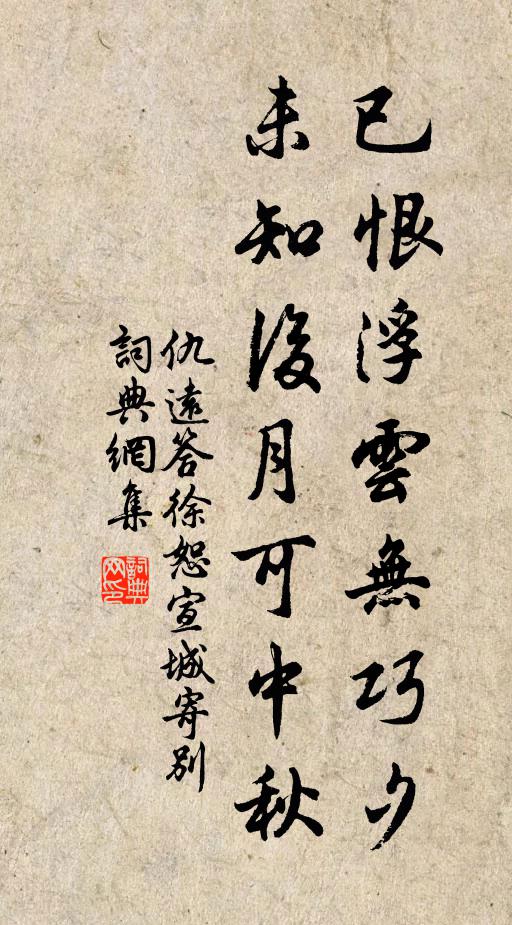 已恨浮雲無巧夕
未知後月可中秋
仇遠答徐恕宣城寄別
詞典網集
詞典網印